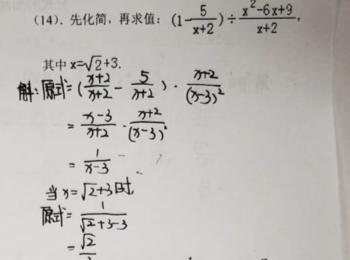 (14). 先化简，再求值：(1-5/(x+2))÷(x²-6x+9)/(x+2),
其中 x=√2+3.
解：原式=((x+2)/(x+2) - 5/(x+2)) · (x+2)/(x-3)²
= (x-3)/(x+2) · (x+2)/(x-3)²
= 1/(x-3)
当 x=√2+3时,
原式= 1/(√2+3-3)
= √2/2